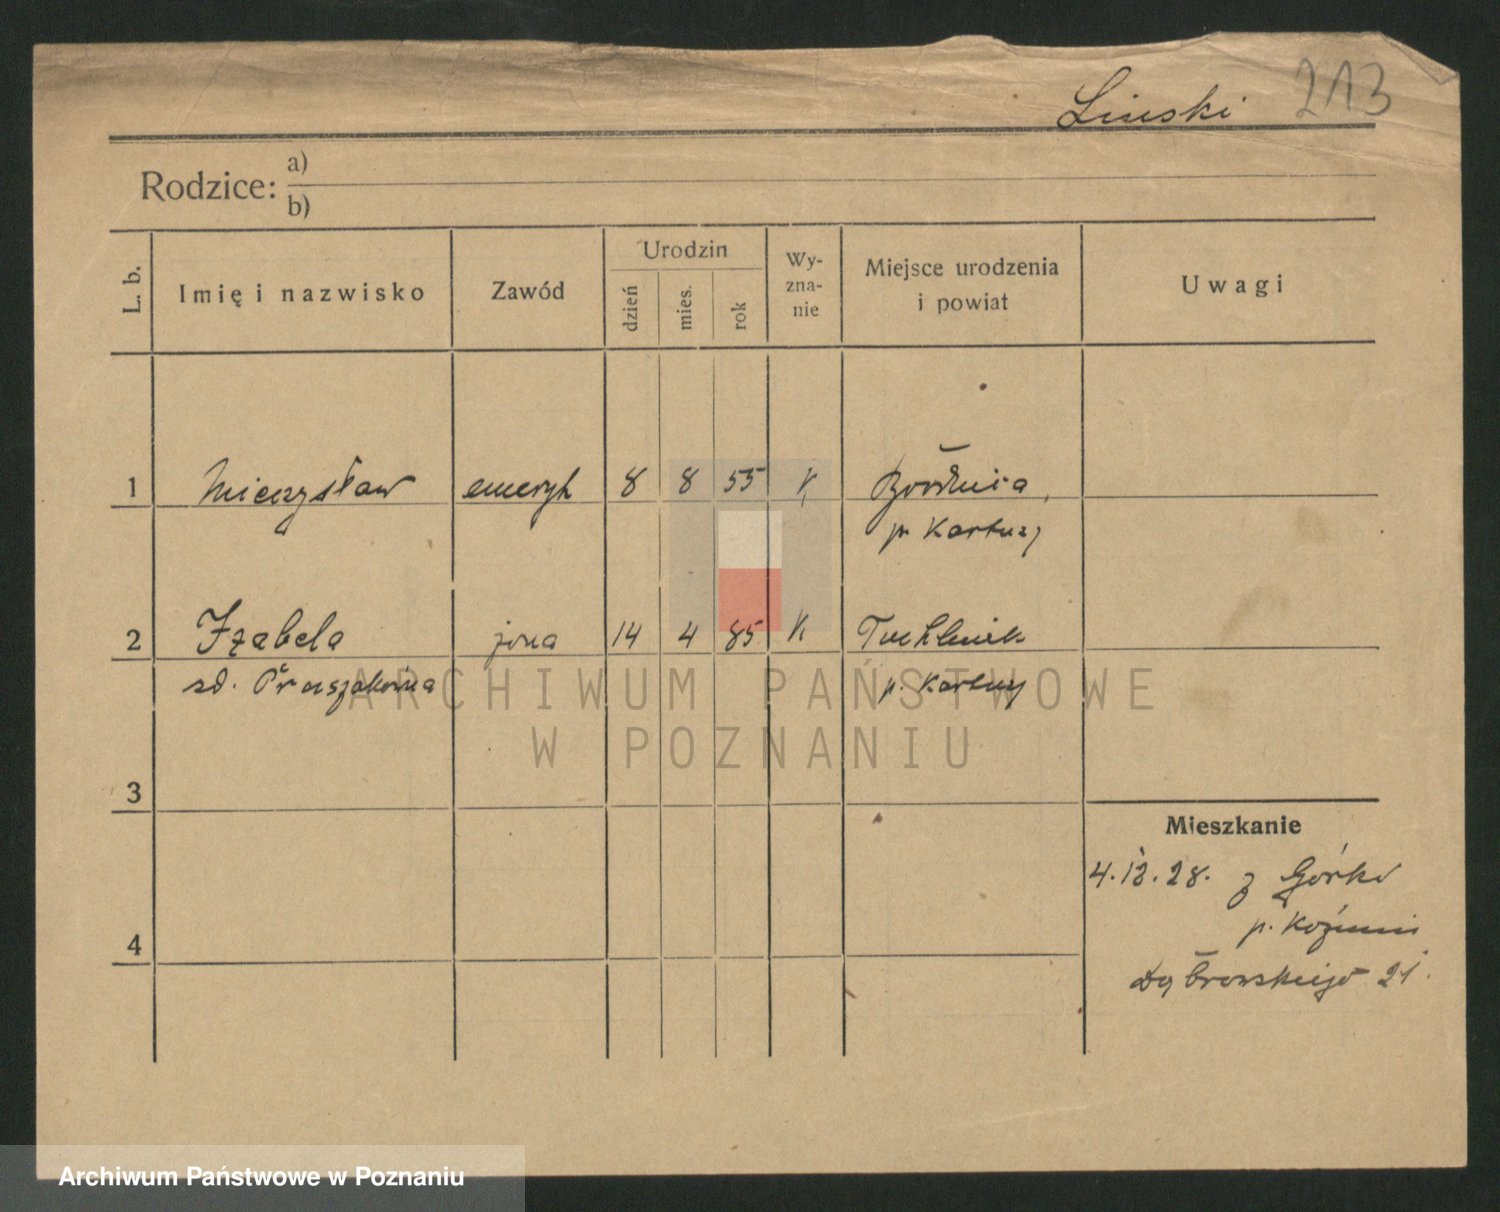 Linski 213
Rodzice: a)
b)
L. b.
Imię i nazwisko
Zawód
Urodzin
dzień
mies.
rok
Wy-
zna-
nie
Miejsce urodzenia
i powiat
Uwagi
1 Mieczysław emeryt 8 8 55 K Brodnica,
p. Kartuzy
2 Izabela żona 14 4 85 K
zd. p. Kartuzy
ARCHIWUM PAŃSTWOWE
W POZNANIU
3
Mieszkanie
4.12.28. z Górki
p. Koźmin
4
Dąbrowskiego 21.
Archiwum Państwowe w Poznaniu